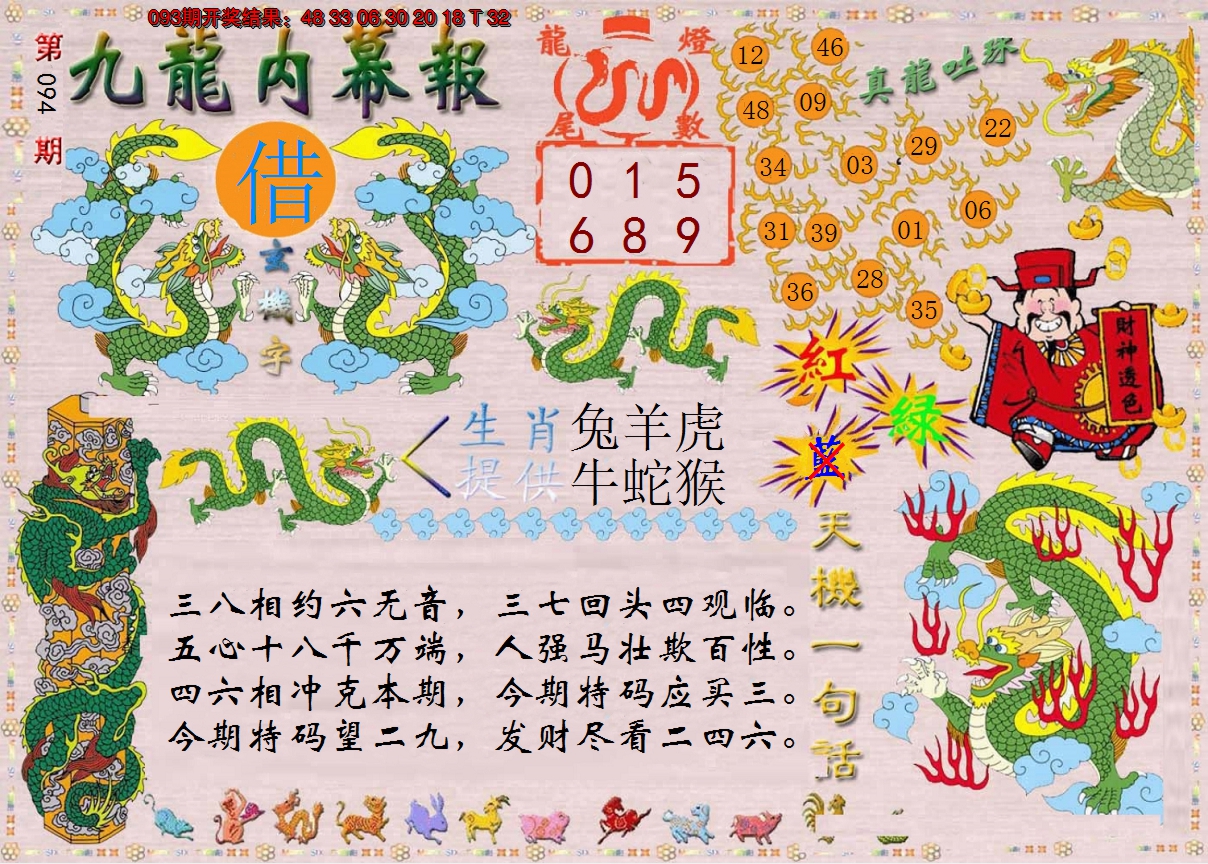 093期开奖结果：48 33 06 30 20 18 T 32
第094期
九龍内幕報
借
玄機字
龍燈
尾數
0 1 5
6 8 9
真龍吐珠
12
46
48
09
29
22
34
03
06
31
39
01
28
36
35
財神透色
紅
綠
藍
生肖 兔羊虎
提供 牛蛇猴
天機一句話
三八相约六无音，三七回头四观临。
五心十八千万端，人强马壮欺百性。
四六相冲克本期，今期特码应买三。
今期特码望二九，发财尽看二四六。